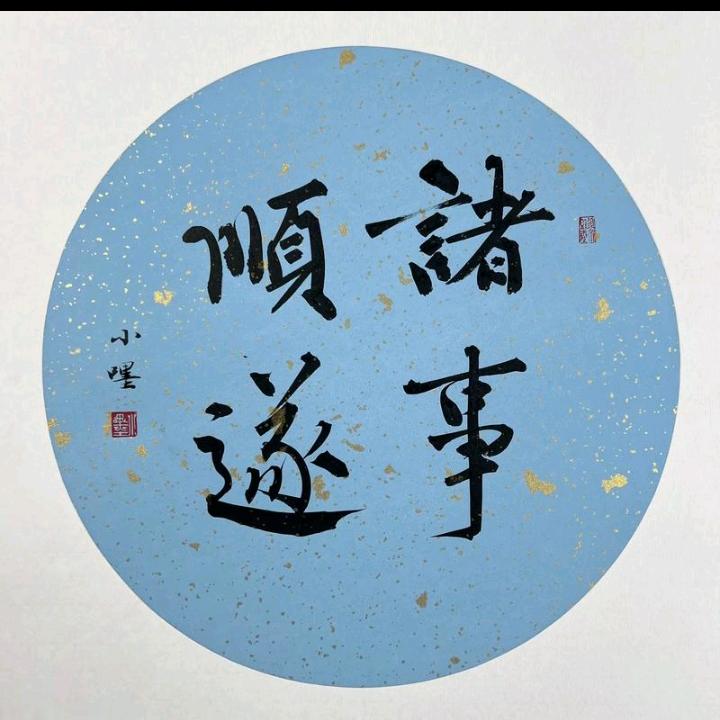 諸事
順遂
小嘿